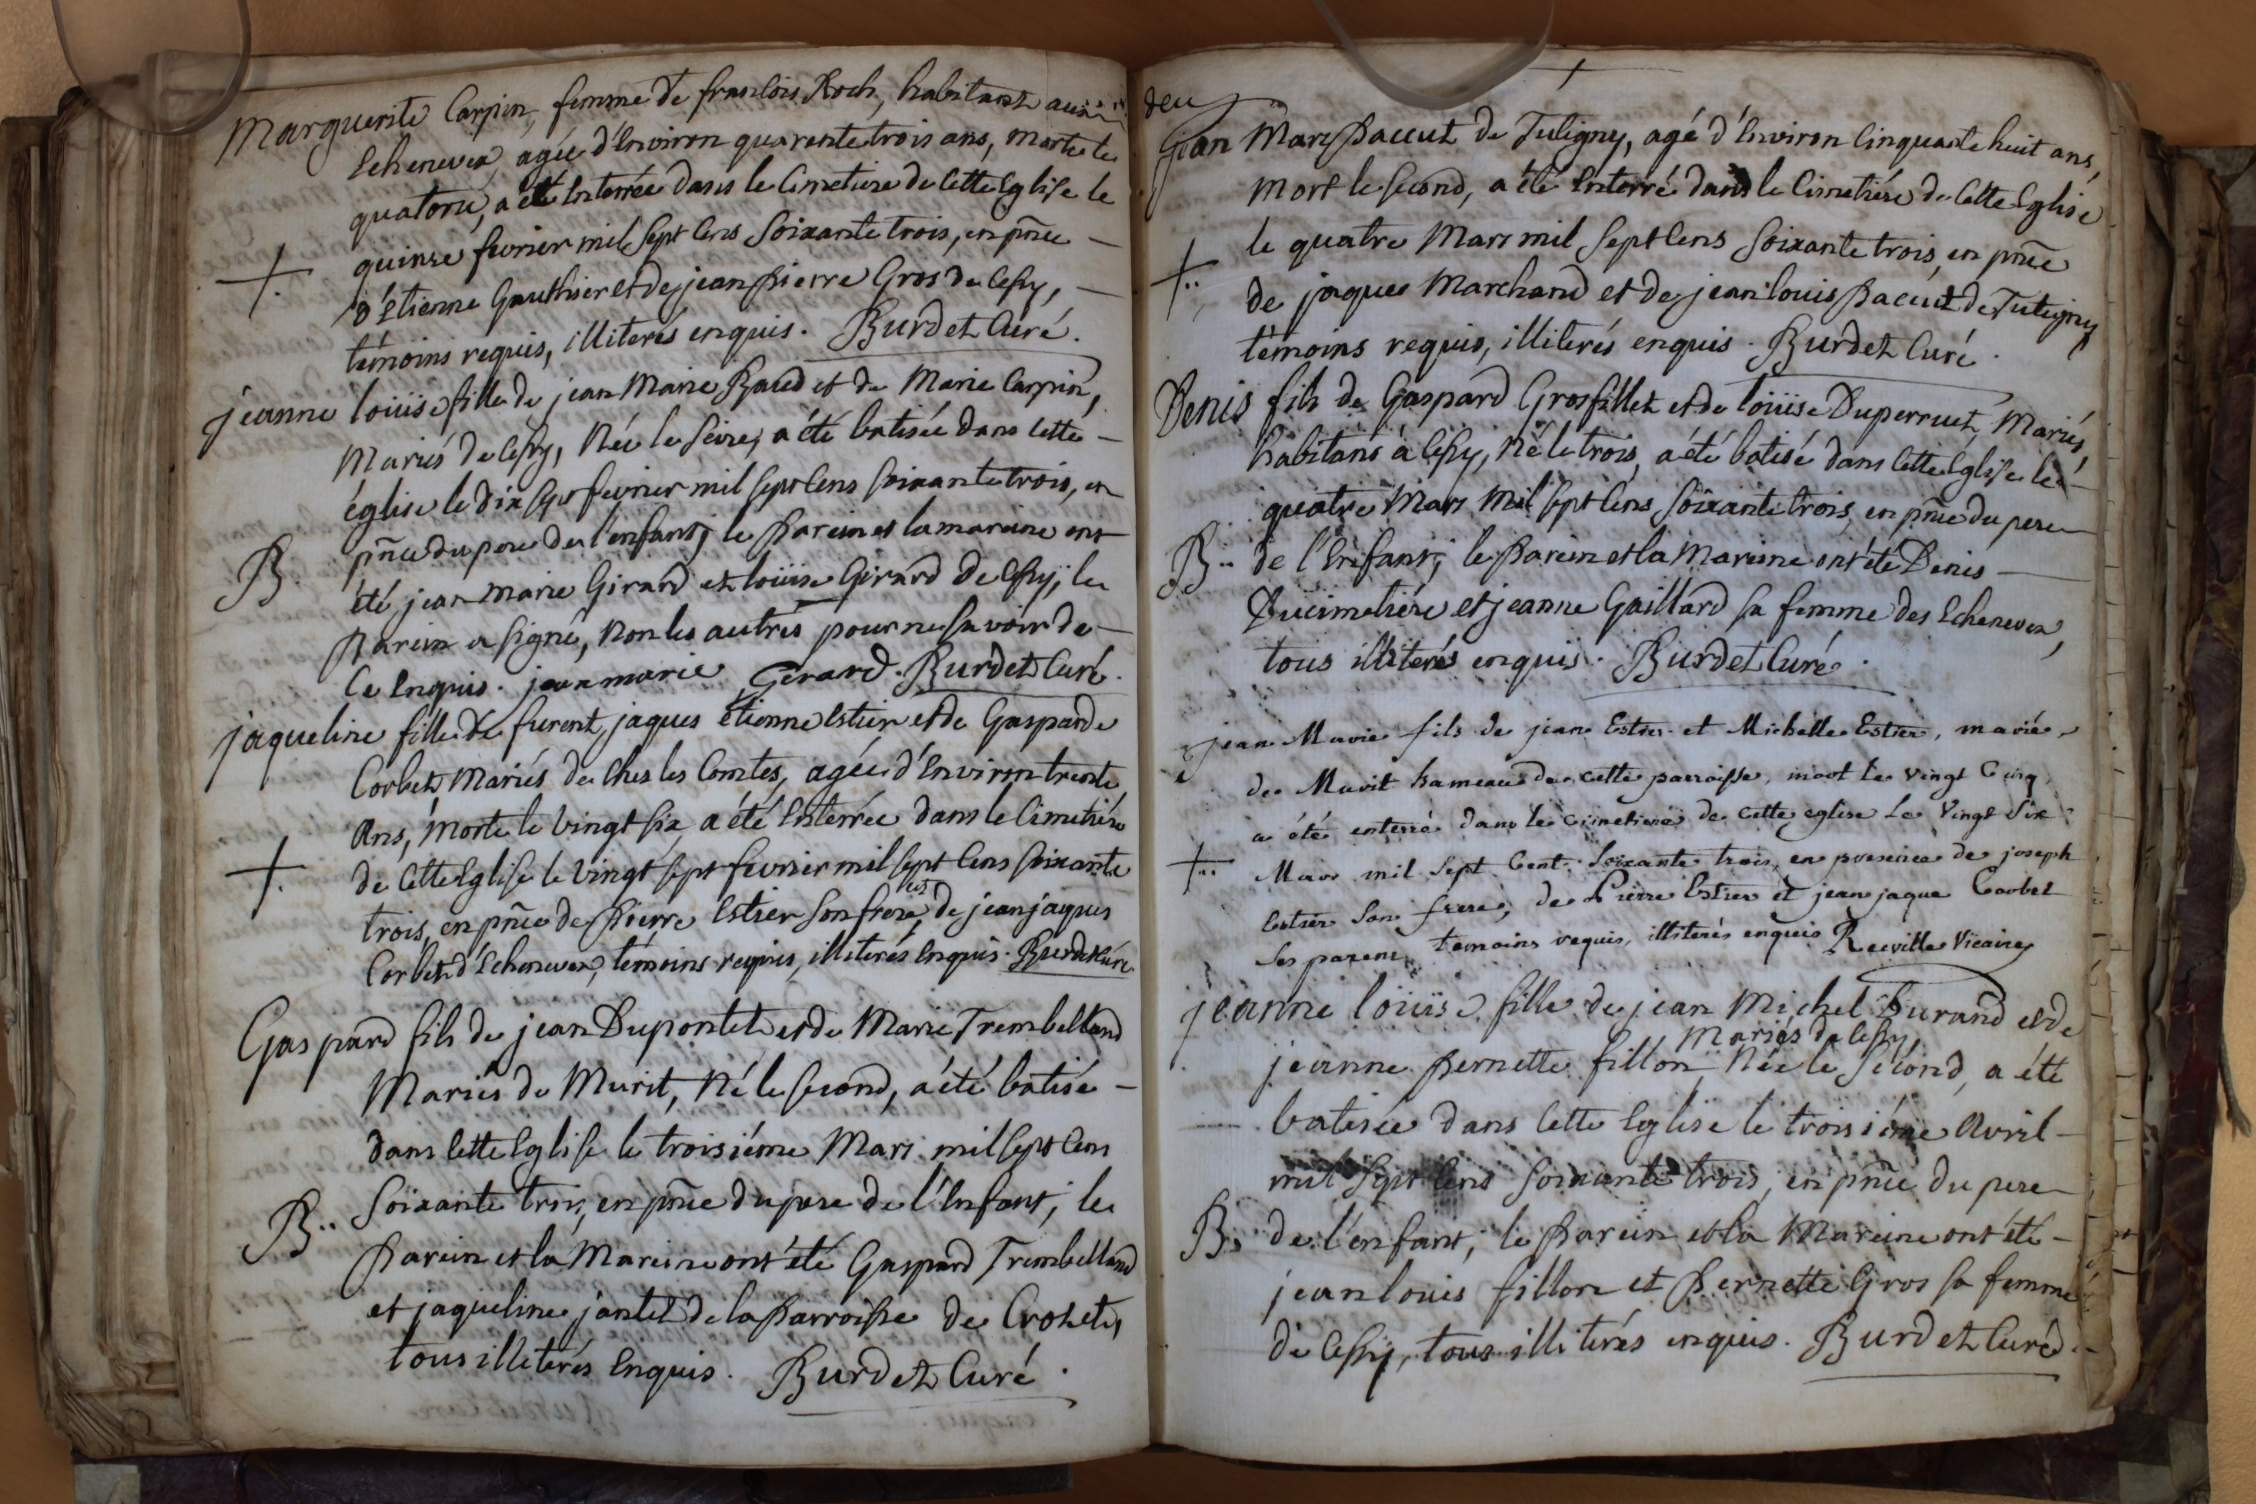 Marguerite Carpin, femme de francois Roch, habitant aux
Echenevex, agée d'Environ quarente trois ans, morte le
quatorze, a été Enterrée dans le Cimetiere de Cette Eglise le
quinze fevrier mil sept Cens Soixante trois, en pñce —
d'Etienne Gauthier et de jean pierre Gros de Cessy, —
témoins requis, illiterés enquis. Burdet Curé.
jeanne loüise fille de jean Marie Baud et de Marie Carpin,
Mariés de Cessy, Née le Seize, a été batisée dans Cette —
église le dix sept fevrier mil sept Cens soixante trois, en
pñce du pere de l'enfant; le Parein et la mareine ont
B. été jean marie Girard et loüise Girard de Cessy; le
Parein a signé, non les autres pour ne savoir de —
Ce Enquis. jean marie Gerard. Burdet Curé.
jaqueline fille de furent jaques étienne Estier et de Gasparde
Corbet, Mariés de Ches les Comtes, agée d'Environ trente
Ans, morte le vingt six, a été Enterrée dans le Cimetiére
de Cette Eglise le vingt sept fevrier mil sept Cens soixante
trois, en pñce de Pierre Estier son frere, et de jean jaques
Corbet d'Echenevex, témoins requis, illiterés Enquis. Burdet Curé
Gaspard fils de jean Dupontet et de Marie Trembelland
Mariés de Murit, Né le second, a été batisé —
dans Cette Eglise le troisiéme Mars mil sept Cens
B.. Soixante trois, en pñce du pere de l'Enfant; le
Parein et la Mareine ont été Gaspard Trembelland
et jaqueline jantet de la Parroisse de Crozet,
tous illiterés Enquis. Burdet Curé.
jean Marc Paccut de Tutigny, agé d'Environ Cinquante huit ans,
mort le second, a été Enterré dans le Cimetiére de Cette Eglise
le quatre Mars mil sept Cens soixante trois, en pñce
de jaques Marchand et de jean louis Paccut de Tutigny
témoins requis, illiterés enquis. Burdet Curé.
Denis fils de Gaspard Grosfillet et de loüise Duperrut, Mariés,
habitans à Cessy, Né le trois, a été batisé dans Cette Eglise le —
quatre Mars Mil sept Cens soixante trois, en pñce du pere
B.. de l'Enfant; le Parein et la Mareine ont été Denis —
Ducimetiére et jeanne Gaillard sa femme des Echenevex,
tous illiterés enquis. Burdet Curé.
jean Marie fils de jean Estier et Michelle Estier, mariés
de Murit hameau de cette parroisse, mort le vingt Cinq
a été enterré dans le cimetiere de cette eglise le vingt Six
Mars mil Sept Cent Soixante trois, en presence de joseph
Estier Son frere, de Pierre Estier et jean jaque Corbet
ses parens, temoins requis, illiterés enquis Reuville Vicaire
jeanne loüise fille de jean Michel Durand et de
Mariés de Cessy,
jeanne Pernette fillon Née le second, a été
batisée dans Cette Eglise le troisiéme Avril —
mil sept Cens soixante trois, en pñce du pere
B. de l'enfant; le Parein et la Mareine ont été —
jean louis fillon et Pernette Gros sa femme
de Cessy, tous illiterés enquis. Burdet Curé.